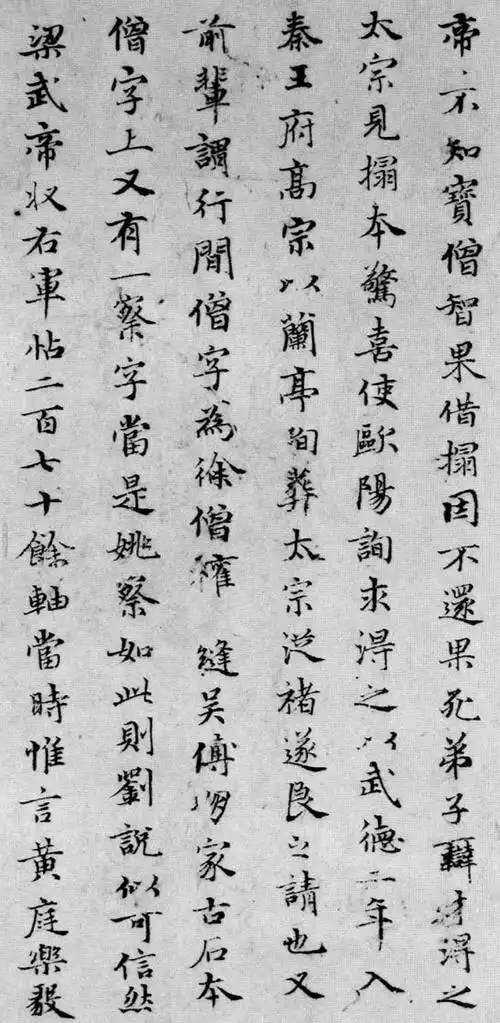 帝不知寶僧智果借搨因不還果死弟子辯才得之
太宗見搨本驚喜使歐陽詢求得之以武德二年入
秦王府高宗以蘭亭殉葬太宗従褚遂良之請也又
前輩謂行間僧字為徐僧權縫吳傅朋家古石本
僧字上又有一察字當是姚察如此則劉說似可信然
梁武帝收右軍帖二百七十餘軸當時惟言黃庭樂毅